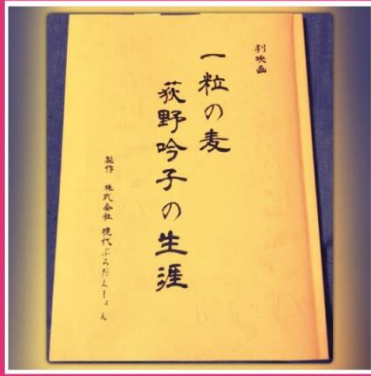 劇映画
一粒の麦
荻野吟子の生涯
製作 株式会社 現代ぷろだくしょん